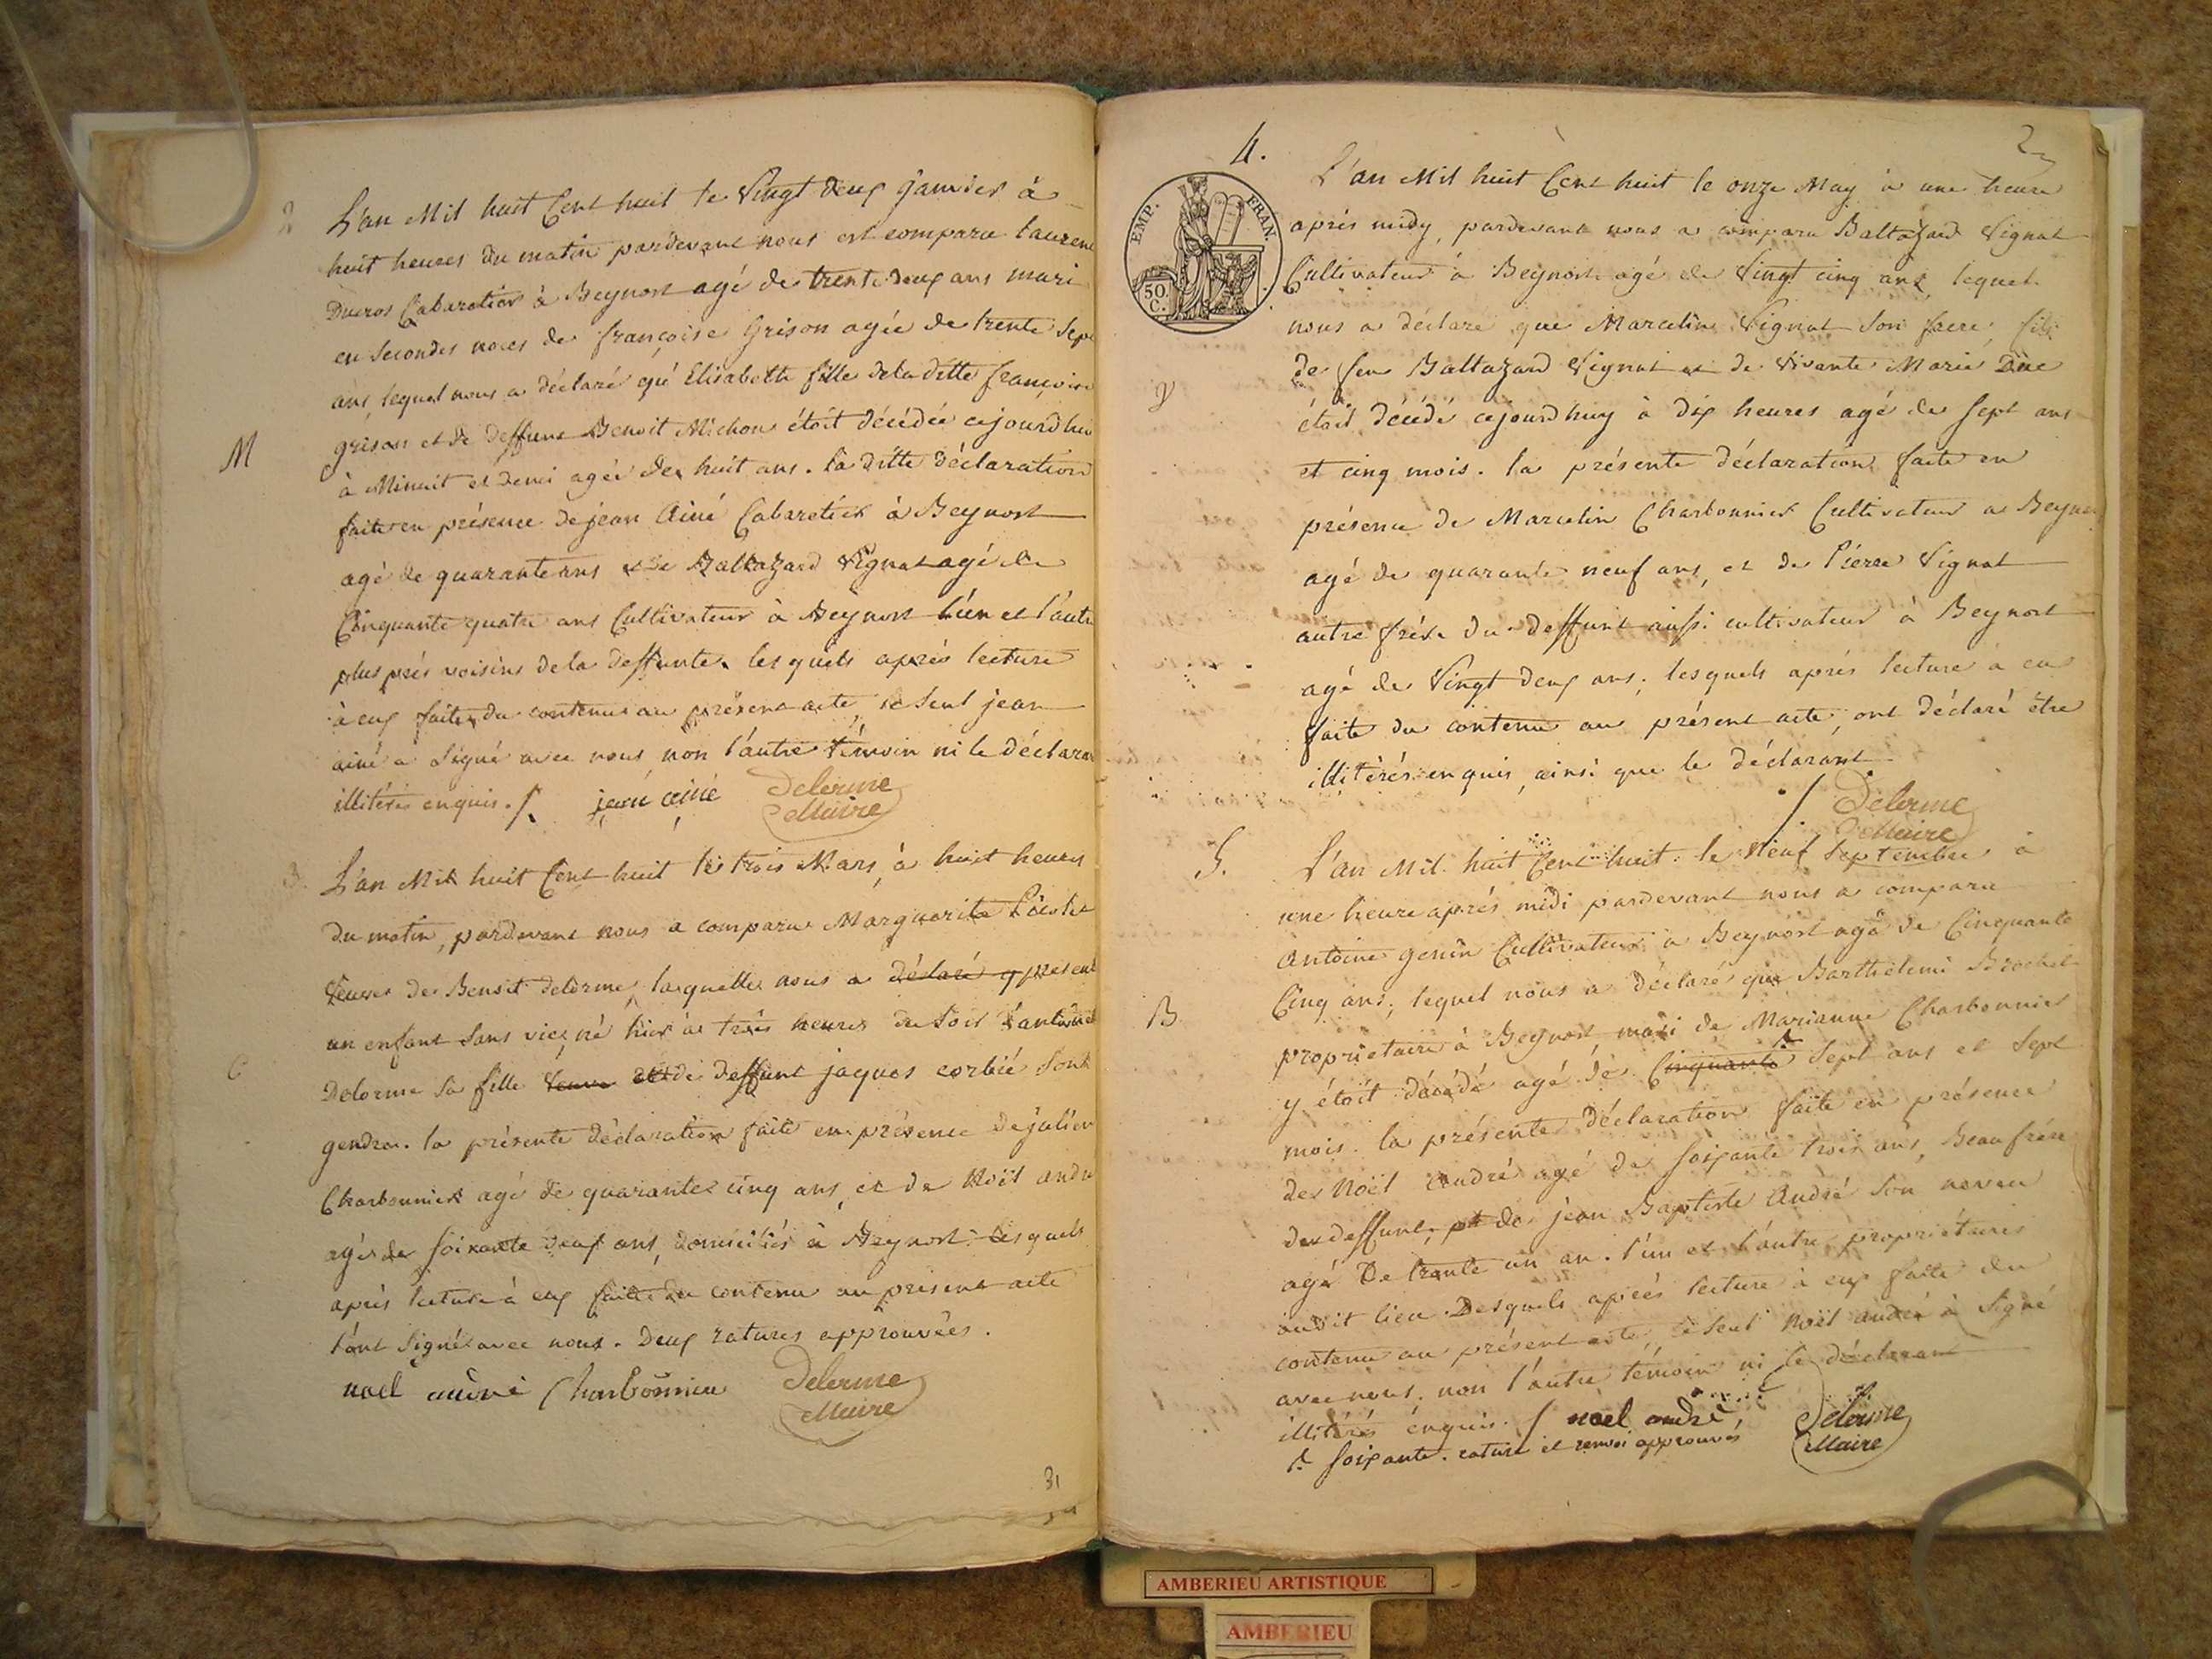 2
L'an Mil huit Cent huit le Vingt deux Janvier à
huit heures du matin pardevant nous est comparu laurent
Ducros Cabaretier à Beynost agé de trente deux ans mari
en secondes noces de françoise Grison agée de trente sept
ans, lequel nous a déclaré qué Elisabeth fille de la ditte françoise
grison et de deffunt Benoit Michon étoit décédée cejourdhui
M
à Minuit et demi agée de huit ans. la ditte déclaration
faite en présence de jean Ainé Cabaretier à Beynost
agé de quarante ans et de Baltazard Vignat agé de
Cinquante quatre ans Cultivateur à Beynost l'un et l'autre
plus près voisins de la deffunte. lesquels après lecture
à eux faite du contenu au présent acte, le seul jean
ainé a signé avec nous non l'autre témoin ni le déclarant
illitérés enquis. /. jean ainé Delorme
Maire
3.
L'an Mil huit Cent huit le trois Mars, à huit heures
du matin, pardevant nous a comparu Marguerite
Veuve de Benoit delorme, laquelle nous a déclaré y présenté
un enfant sans vie, né hier à trois heures du soir d'antoinette
C
Delorme sa fille Veuve et de deffunt jaques corbié son
gendre. la présente déclaration faite en présence de julien
Charbonnier agé de quarante cinq ans, et de Noël andré
agé de soixante deux ans, domiciliés à Beynost. lesquels
après lecture à eux faite du contenu au présent acte
l'ont signé avec nous. Deux ratures approuvées.
noel andré Charbonnier Delorme
Maire
31
4.
2
EMP. FRAN.
50 C.
L'an Mil huit Cent huit le onze May à une heure
après midy, pardevant nous a comparu Baltazard Vignat
Cultivateur à Beynost agé de Vingt cinq ans, lequel
nous a déclaré que Marcelin Vignat son frere, fils
de feu Baltazard Vignat et de Vivante Marie Dîne
V
étoit décédé cejourdhuy à dix heures agé de sept ans
et cinq mois. la présente déclaration faite en
présence de Marcelin Charbonnier Cultivateur a Beynost
agé de quarante neuf ans, et de Pierre Vignat
autre frère du deffunt aussi cultivateur à Beynost
agé de Vingt deux ans; lesquels après lecture à eux
faite du contenu au présent acte, ont déclaré être
illitérés enquis, ainsi que le déclarant.
/ Delorme
Maire
5.
L'an Mil huit Cent huit le Neuf Septembre à
une heure après midi pardevant nous a comparu
Antoine genin Cultivateur a Beynost agé de Cinquante
Cinq ans; lequel nous a déclaré que Barthélemi Brochet
B
propriétaire à Beynost, mari de Marianne Charbonnier
y étoit décédé agé de Cinquante sept ans et sept
mois. la présente déclaration faite en présence
de Noël andré agé de soixante trois ans, Beau frére
du deffunt, et de jean Baptiste André son neveu
agé De trente un an. l'un et l'autre propriétaires
audit lieu. Desquels après lecture à eux faite du
contenu au présent acte, le seul Noël andré à signé
avec nous, non l'autre témoin ni le déclarant
illitérés enquis. / noel andré Delorme
Maire
soixante. rature et renvoi approuvés
AMBERIEU ARTISTIQUE
AMBERIEU